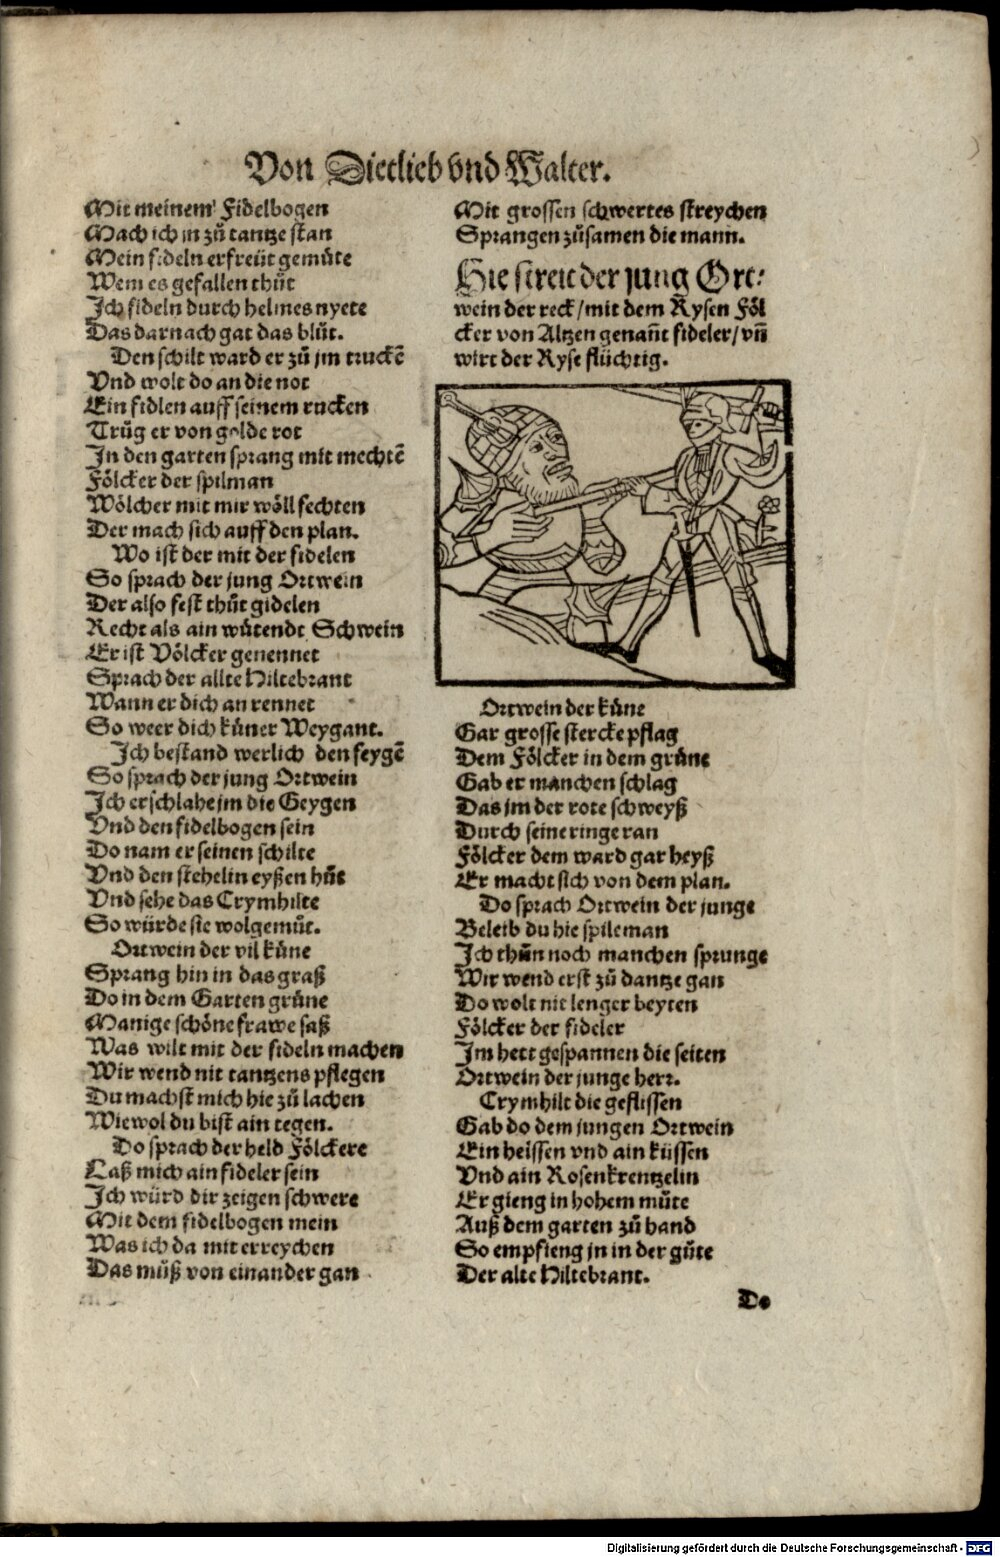 Von Dietlieb vnd Walter.
Mit meinem Fidelbogen
Mach ich jn zuͦ tantze stan
Mein fideln erfreüt gemuͤte
Wem es gefallen thuͦt
Ich fideln durch helmes nyete
Das darnach gat das bluͦt.
Den schilt ward er zuͦ jm truckē
Vnd wolt do an die not
Ein fidlen auff seinem rucken
Truͦg er von golde rot
In den garten sprang mit mechtē
Fölcker der spilman
Wölcher mit mir wöll fechten
Der mach sich auff den plan.
Wo ist der mit der fidelen
So sprach der jung Ortwein
Der also fest thuͦt gidelen
Recht als ain wuͤtendt Schwein
Er ist Völcker genennet
Sprach der allte Hiltebrant
Wann er dich an rennet
So weer dich kuͤner Weygant.
Ich bestand werlich den feygē
So sprach der jung Ortwein
Ich erschlahe jm die Geygen
Vnd den fidelbogen sein
Do nam er seinen schilte
Vnd den stehelin eyßen huͦt
Vnd sehe das Crymhilte
So würde sie wolgemuͦt.
Ortwein der vil kuͤne
Sprang hin in das graß
Do in dem Garten gruͤne
Manige schöne frawe saß
Was wilt mit der fideln machen
Wir wend nit tantzens pflegen
Du machst mich hie zuͦ lachen
Wiewol du bist ain tegen.
Do sprach der held Fölckere
Laß mich ain fideler sein
Ich würd dir zeigen schwere
Mit dem fidelbogen mein
Was ich da mit erreychen
Das muͦß von einander gan
Mit grossen schwertes streychen
Sprangen zuͦsamen die mann.
Hie streit der jung Ort⸗
wein der reck / mit dem Rysen Föl
cker von Altzen genañt fideler / vñ
wirt der Ryse flüchtig.
Ortwein der kuͤne
Gar grosse stercke pflag
Dem Fölcker in dem gruͤne
Gab er manchen schlag
Das jm der rote schweyß
Durch seine ringe ran
Fölcker dem ward gar heyß
Er macht sich von dem plan.
Do sprach Ortwein der junge
Beleib du hie spileman
Ich thuͦn noch manchen sprunge
Wir wend erst zuͦ dantze gan
Do wolt nit lenger beyten
Fölcker der fideler
Im hett gespannen die seiten
Ortwein der junge herr.
Crymhilt die geflissen
Gab do dem jungen Ortwein
Ein heissen vnd ain küssen
Vnd ain Rosenkrentzelin
Er gieng in hohem muͤte
Auß dem garten zuͦ hand
So empfieng jn in der guͤte
Der alte Hiltebrant.
Do
Digitalisierung gefördert durch die Deutsche Forschungsgemeinschaft - DFG